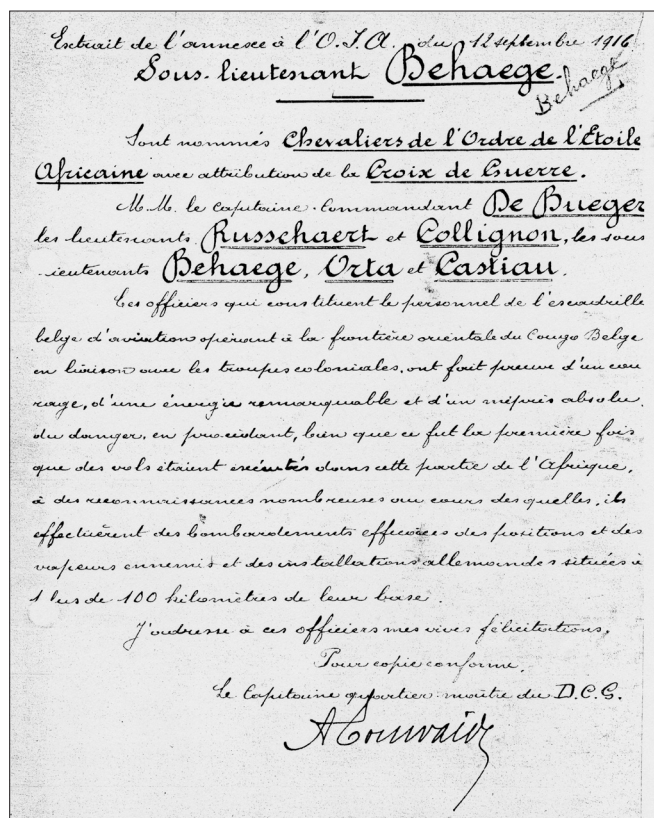 Extrait de l'annexe à l'O.J.A. du 12 septembre 1916
Sous-lieutenant Behaege.
Behaege
Sont nommés Chevaliers de l'Ordre de l'Etoile
Africaine avec attribution de la Croix de Guerre.
M.M. le capitaine-commandant De Bueger
les lieutenants Russchaert et Collignon, les sous
-ieutenants Behaege, Orta et Castiau.
Ces officiers qui constituent le personnel de l'escadrille
belge d'aviation opérant à la frontière orientale du Congo Belge
en liaison avec les troupes coloniales, ont fait preuve d'un cou
rage, d'une énergie remarquable et d'un mépris absolu
du danger, en procédant, bien que ce fut la première fois
que des vols étaient exécutés dans cette partie de l'Afrique,
à des reconnaissances nombreuses au cours des quelles, ils
effectuèrent des bombardements efficaces des positions et des
vapeurs ennemis et des installations allemandes situées à
lus de 100 kilomètres de leur base.
J'adresse à ces officiers mes vives félicitations,
Pour copie conforme,
Le Capitaine quartier-maître du D.C.G.